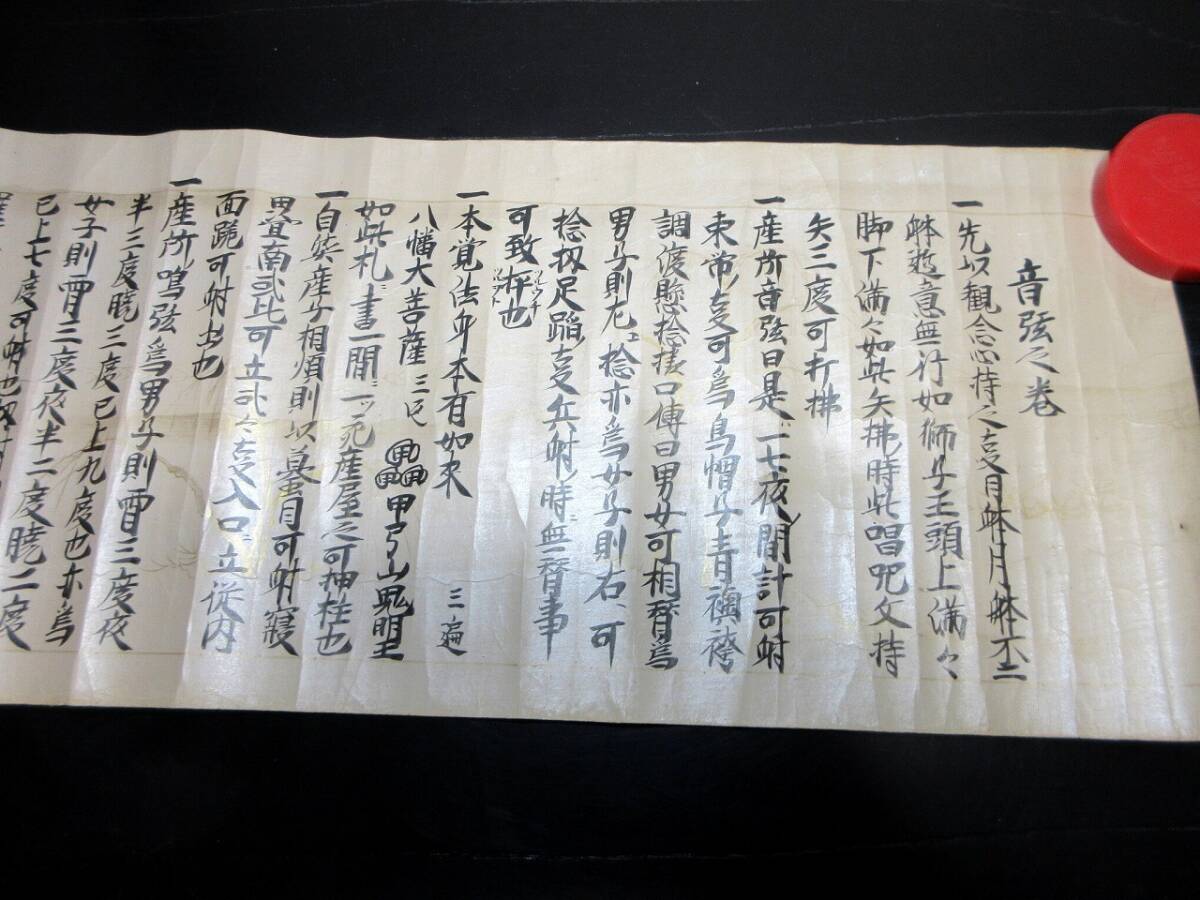 音弦之巻
一先以観念心持之支月躰月躰不二
躰遊意無行如獅子王頭上満々
脚下満々如此矢拂時此唱咒文持
矢三度可打拂
一産所音弦曰是ニ一七夜ノ間計可射
束帯ノ支可為烏帽子青襖袴
調度懸捻様口傳曰男女可相替為
男子則左ニ捻亦為女子則右ニ可
捻扨足踏支兵射ノ時ニ無替事
可致抨也
一本覚法身本有如来 三遍
八幡大菩薩 三只 甲弓山鬼明王
如此札ニ書一間ニ一ッ宛産屋之可抽柱也
一自然産子相煩則以蟇目可射寝
男宜南弐比可立弐々支入口ニ立従内
面跪可射出也
一産所鳴弦為男子則宵三度夜
半三度暁三度已上九度也亦為
女子則宵三度夜半二度暁二度
已上七度可射也